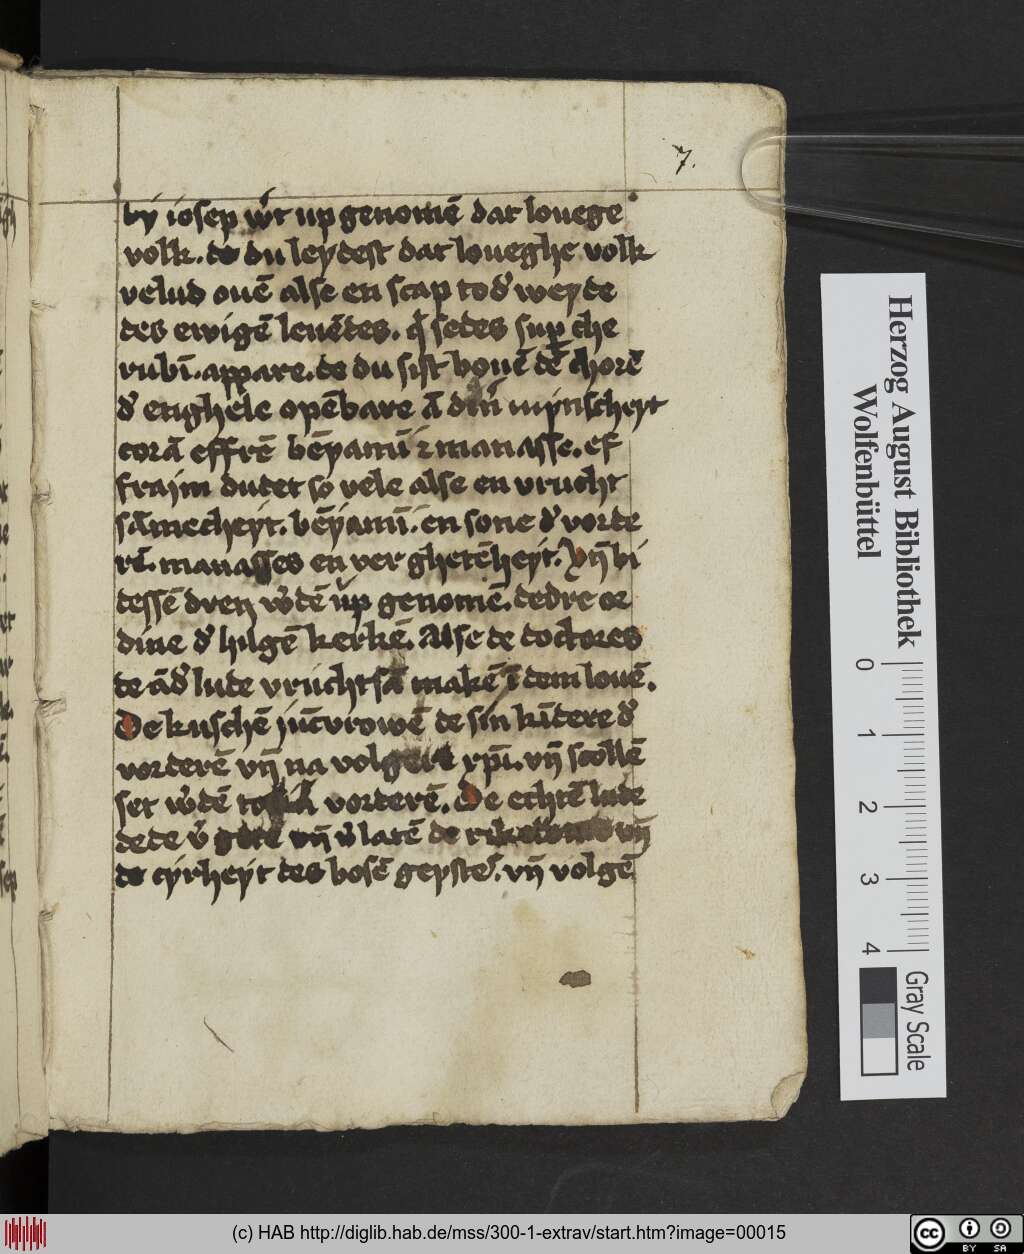 7.
by iosep wͦrt up genomē dat louege
volk. de du leydest dat loueghe volk
velud ouē alse en scap to dʾ weyde
des ewigē leuēdes. qͥ sedes sup che
rubī. appare. de du sist bouē dē chorē
dʾ enghele opēbare ā dīn mynscheyt
corā effrē bēyamī ⁊ manasse. ef
fraim dutet so vele alse en vrucht
sāmecheyt. bēyamī. en sone dʾ vorde
rē. manasses en ver ghetēheyt. vn̄ bi
dessē dren wͦdē up genomē. dedre or
dine dʾ hilgē kerkē. Alse de doctores
de ādʾ lude vruchtsā makē ī dem louē.
De kuschē iūcvrowē de sin kīdere dʾ
vorderē vn̄ na volgere xp̄i. vn̄ scollē
set wͦdē to vorderē. De echtē lude
dede vʾ getē vn̄ vʾ latē de vn̄
de cyrheyt des bosē geystes. vn̄ volgē
Herzog August Bibliothek
Wolfenbüttel
0 1 2 3 4
Gray Scale
(c) HAB http://diglib.hab.de/mss/300-1-extrav/start.htm?image=00015
cc BY SA